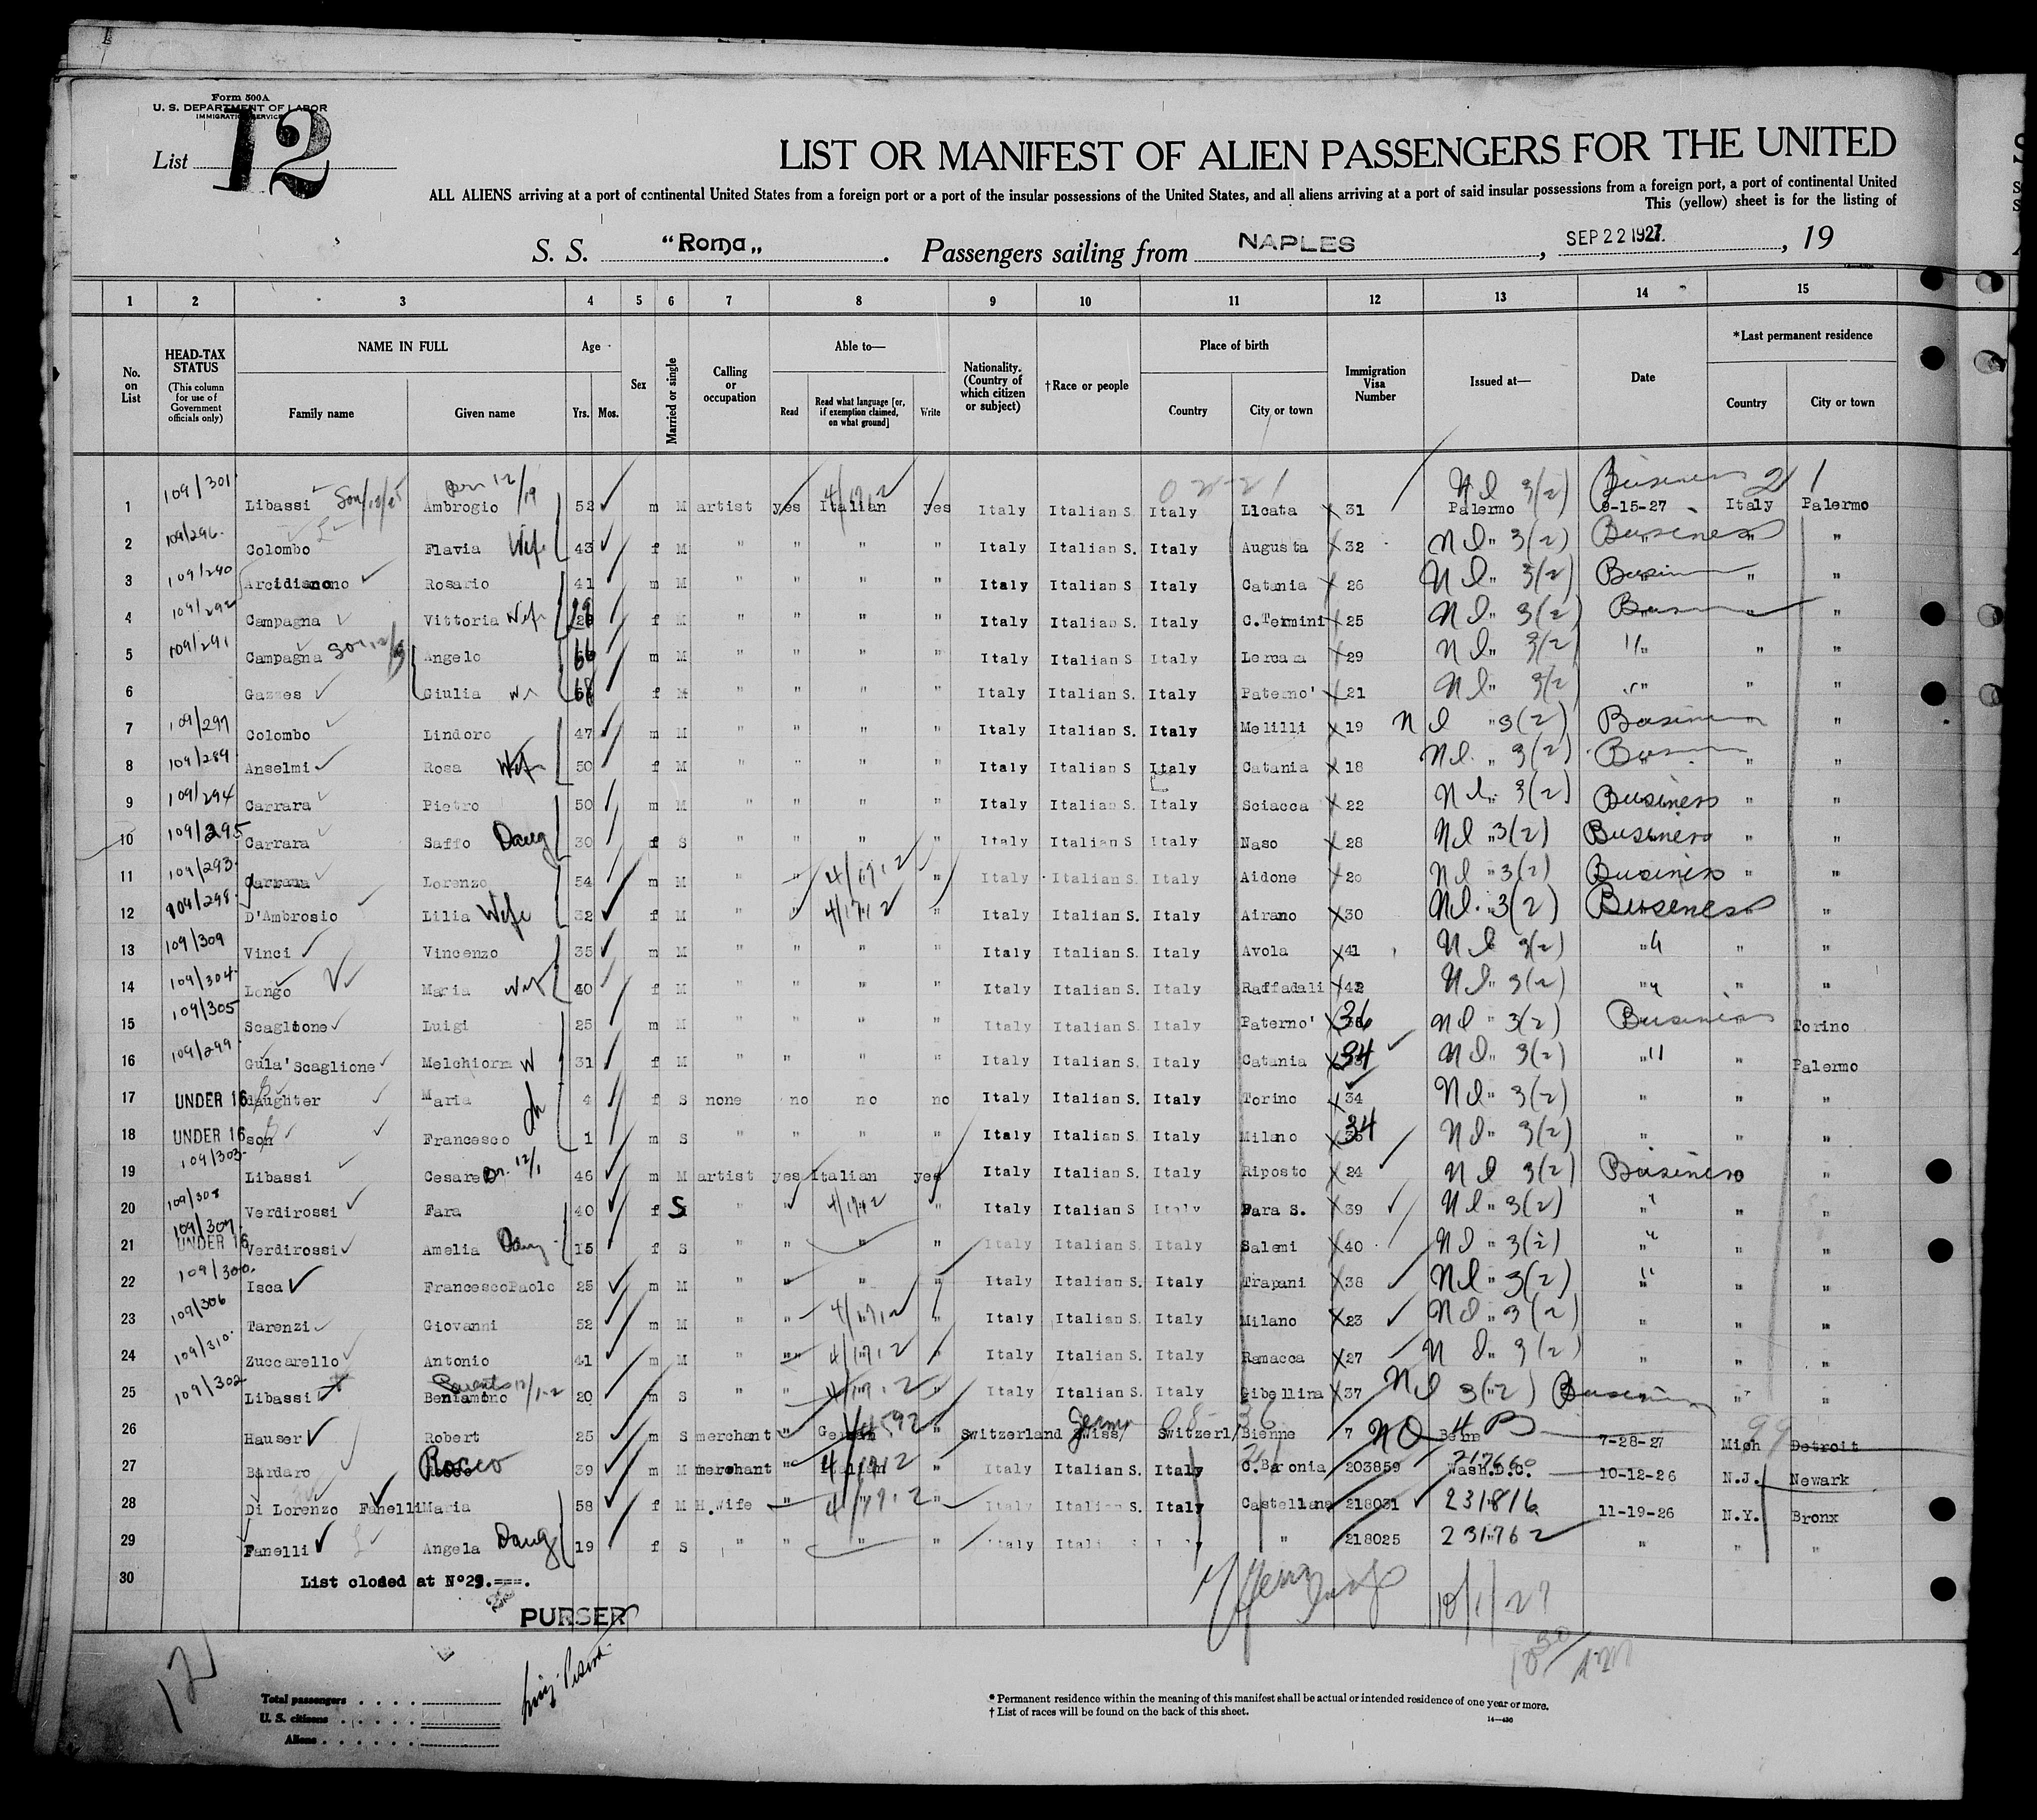 Form 500A
U. S. DEPARTMENT OF LABOR
IMMIGRATION SERVICE
List 12
LIST OR MANIFEST OF ALIEN PASSENGERS FOR THE UNITED
ALL ALIENS arriving at a port of continental United States from a foreign port or a port of the insular possessions of the United States, and all aliens arriving at a port of said insular possessions from a foreign port, a port of continental United
This (yellow) sheet is for the listing of
S. S. "Roma". Passengers sailing from NAPLES, SEP 22 1927, 19
1 2 3 4 5 6 7 8 9 10 11 12 13 14 15
No. on List
HEAD-TAX STATUS (This column for use of Government officials only)
NAME IN FULL
Family name Given name
Age Yrs. Mos.
Sex
Married or single
Calling or occupation
Able to—
Read Read what language [or, if exemption claimed, on what ground] Write
Nationality. (Country of which citizen or subject)
†Race or people
Place of birth
Country City or town
Immigration Visa Number
Issued at—
Date
*Last permanent residence
Country City or town
1 109/301 Libassi Ambrogio 52 m M artist yes Italian yes Italy Italian S. Italy Licata 31 Palermo 3(2) 9-15-27 Business Italy Palermo
2 109/296 Colombo Flavia Wife 43 f M " " " " Italy Italian S. Italy Augusta 32 " 3(2) Business " "
3 109/290 Arcidiacono Rosario 41 m M " " " " Italy Italian S. Italy Catania 26 " 3(2) " "
4 109/292 Campagna Vittoria Wife f M " " " " Italy Italian S. Italy C.Termini 25 " 3(2) " "
5 109/291 Campagna Angelo 66 m M " " " " Italy Italian S Italy Lercara 29 " 3(2) " " "
6 Gazzes Giulia 68 f M " " " " Italy Italian S. Italy Paterno' 21 " 3(2) " " "
7 109/297 Colombo Lindoro 47 m M " " " " Italy Italian S. Italy Melilli 19 " 3(2) " "
8 109/289 Anselmi Rosa Wife 50 f M " " " " Italy Italian S Italy Catania 18 " 3(2) " "
9 109/294 Carrara Pietro 50 m M " " " " Italy Italian S. Italy Sciacca 22 " 3(2) Business " "
10 109/295 Carrara Saffo Daug 30 f S " " " " Italy Italian S Italy Naso 28 " 3(2) Business " "
11 109/293 Carrara Lorenzo 54 m M " " " Italy Italian S. Italy Aidone 20 " 3(2) Business " "
12 109/298 D'Ambrosio Lilia Wife 32 f M " " " Italy Italian S. Italy Airano 30 " 3(2) Business " "
13 109/309 Vinci Vincenzo 35 m M " " " " Italy Italian S. Italy Avola 41 3(2) " " "
14 109/304 Longo Maria 40 f M " " " " Italy Italian S. Italy Raffadali 42 " 3(2) " " "
15 109/305 Scaglione Luigi 25 m M " " " " Italy Italian S. Italy Paterno' 36 " 3(2) Business " Torino
16 109/299 Gula' Scaglione Melchiorra W 31 f M " " " " Italy Italian S. Italy Catania 34 " 3(2) " " Palermo
17 UNDER 16 daughter Maria 4 f S none no no no Italy Italian S. Italy Torino 34 " 3(2) " " "
18 UNDER 16 son Francesco 1 m S " " " " Italy Italian S. Italy Milano 34 " 3(2) " " "
19 109/303 Libassi Cesare 46 m M artist yes Italian yes Italy Italian S. Italy Riposto 24 3(2) Business "
20 109/308 Verdirossi Fara 40 f S " " " Italy Italian S Italy Fara S. 39 " 3(2) " " "
21 109/307 UNDER 16 Verdirossi Amelia Daug 15 f S " " " " Italy Italian S. Italy Salemi 40 " 3(2) " " "
22 109/300 Isca FrancescoPaolo 25 m M " " " " Italy Italian S. Italy Trapani 38 " 3(2) " " "
23 109/306 Tarenzi Giovanni 52 m M " " " Italy Italian S. Italy Milano 23 " 3(2) " " "
24 109/310 Zuccarello Antonio 41 m M " " " Italy Italian S. Italy Ramacca 27 " 3(2) " " "
25 109/302 Libassi Beniamino 20 m S " " " Italy Italian S. Italy Gibellina 37 3(2) " "
26 Hauser Robert 25 m S merchant " German " Switzerland Swiss Switzerl/ Bienne 7 Bern 7-28-27 Mich Detroit
27 Bardaro Rocco 39 m M merchant " Italian " Italy Italian S. Italy C.Baronia 203859 Wash.D.C. 10-12-26 N.J. Newark
28 Di Lorenzo Fanelli Maria 58 f M H.wife " " Italy Italian S. Italy Castellana 218031 231816 11-19-26 N.Y. Bronx
29 Fanelli Angela Daug 19 f S " " " " Italy Itali " 218025 231762 " " "
30 List closed at N°29.===.
PURSER
10/1/27
12
Total passengers
U. S. citizens
Aliens
* Permanent residence within the meaning of this manifest shall be actual or intended residence of one year or more.
† List of races will be found on the back of this sheet.
14—430